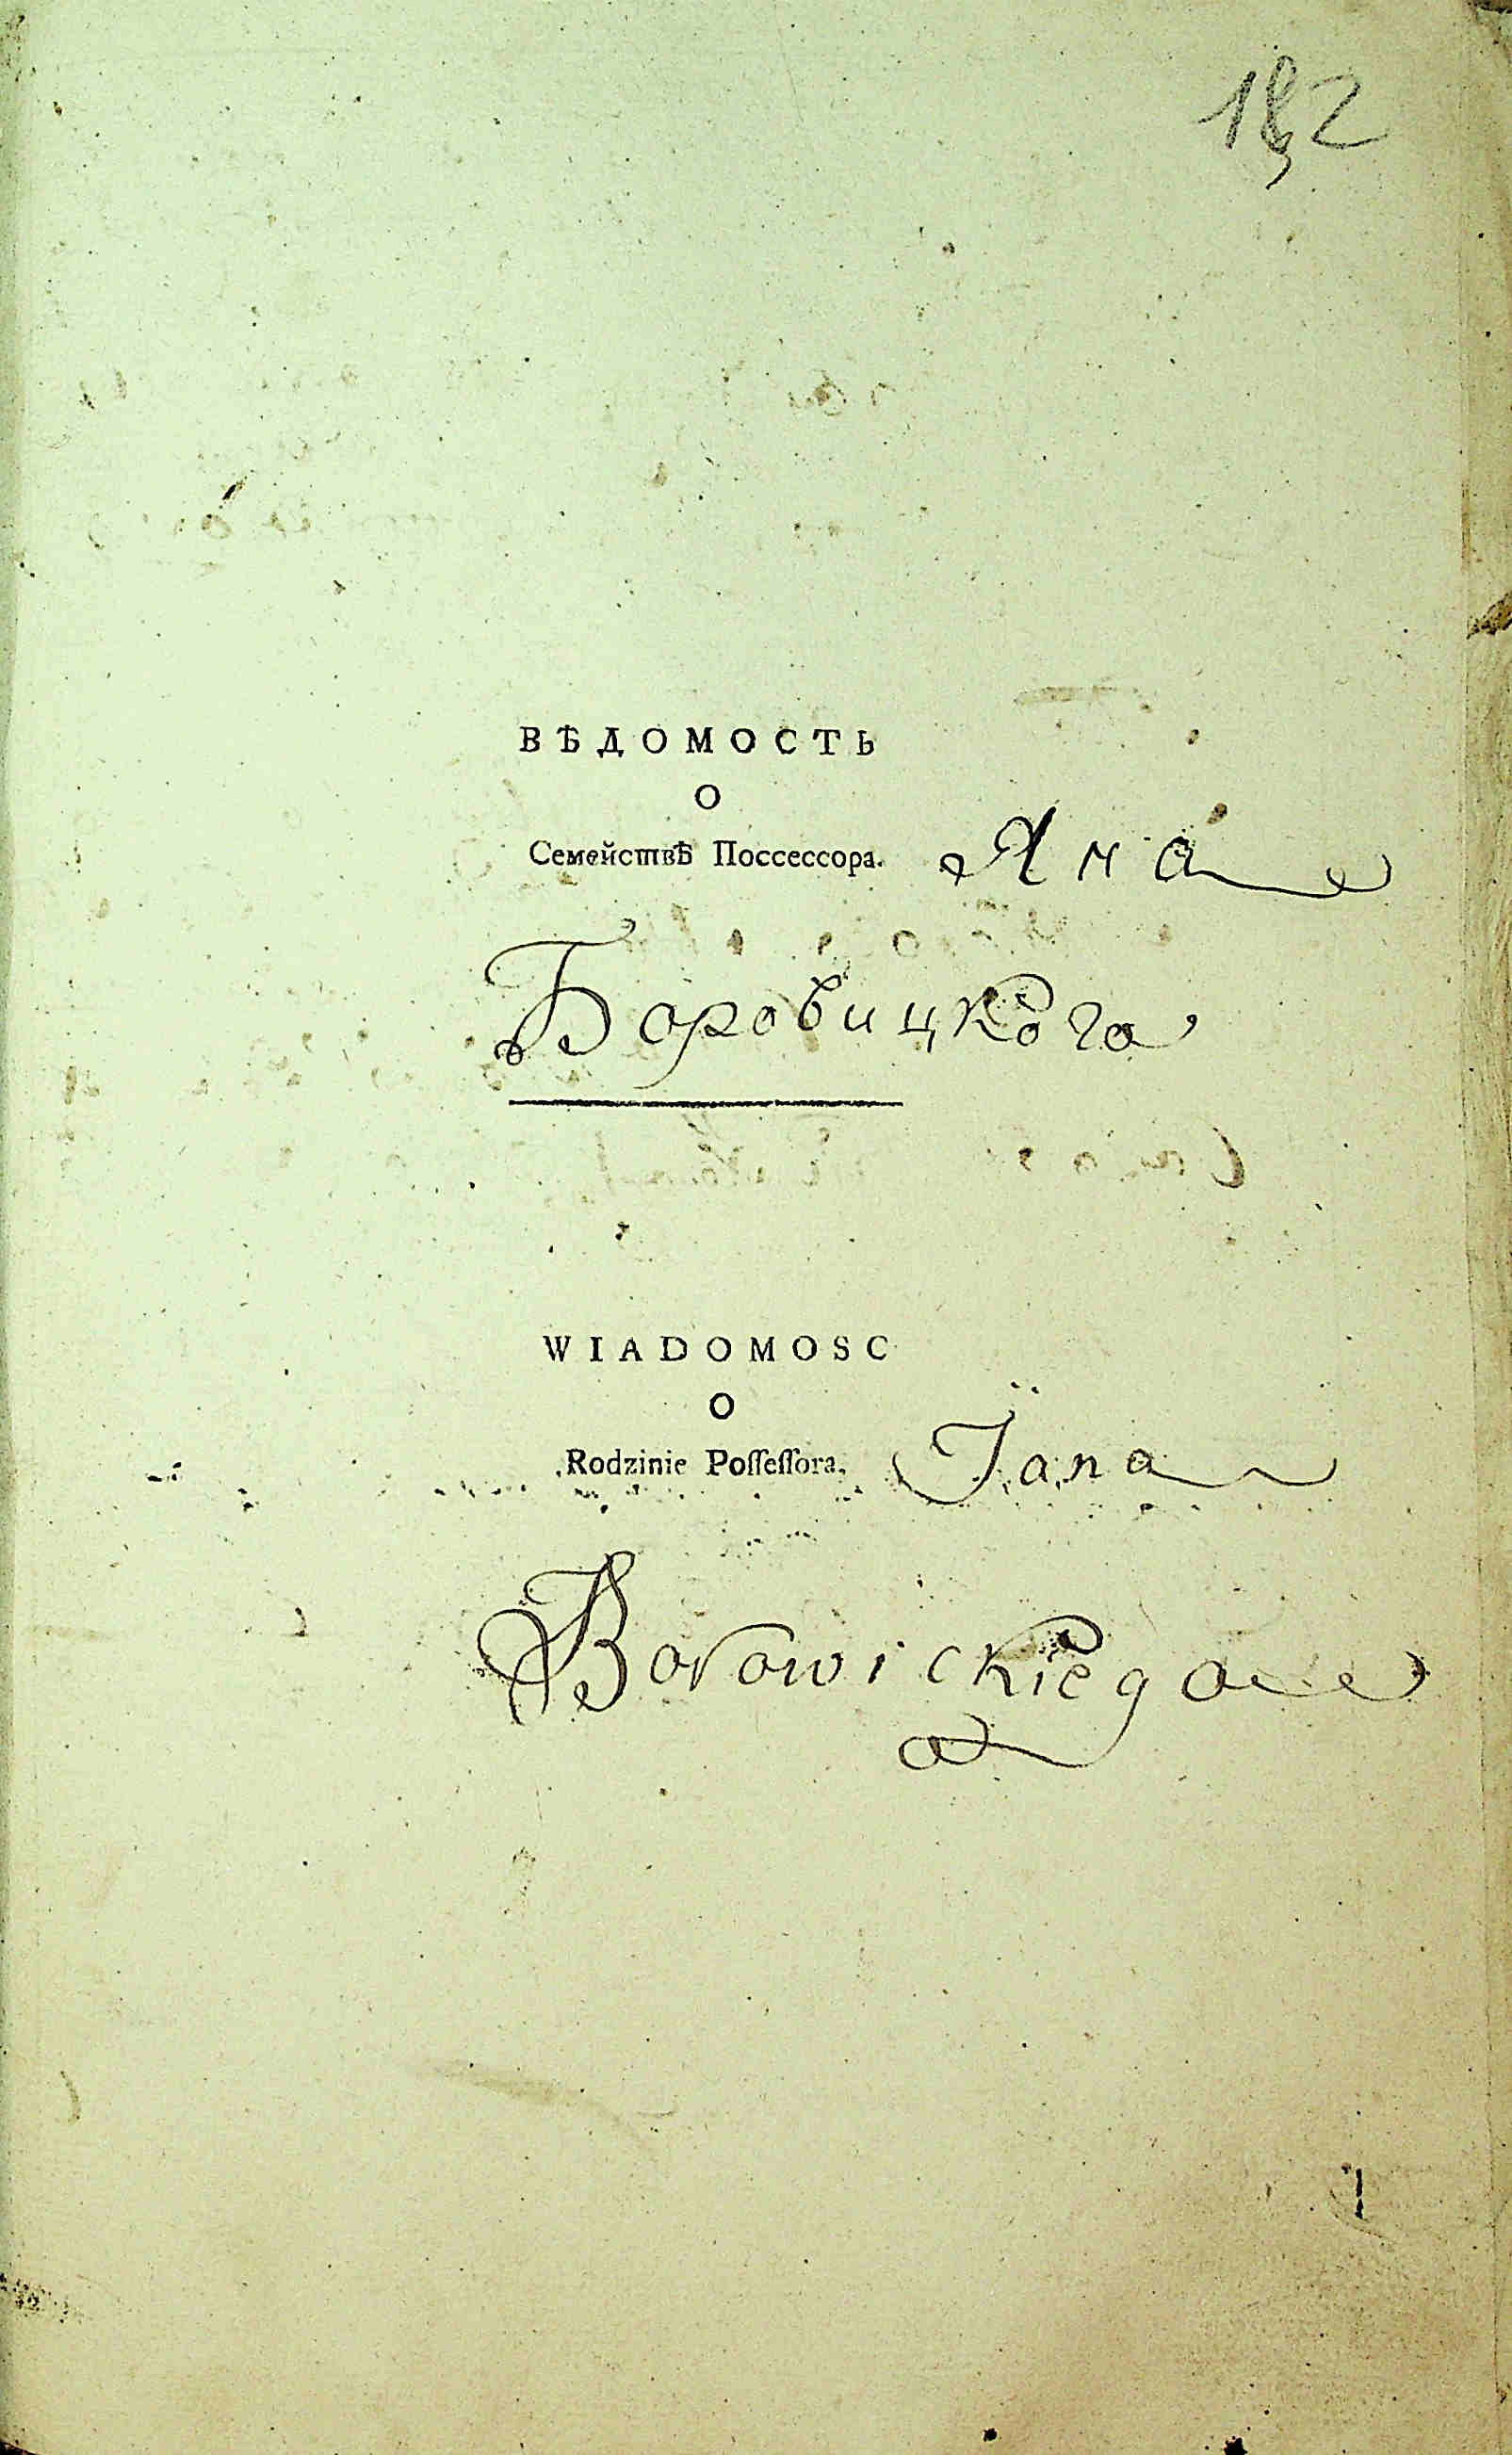 182
ВѢДОМОСТЬ
О
Семействѣ Поссессора. Яна
Боровицкого
WIADOMOSC
O
Rodzinie Poſſeſſora, Jana
Borowickiego